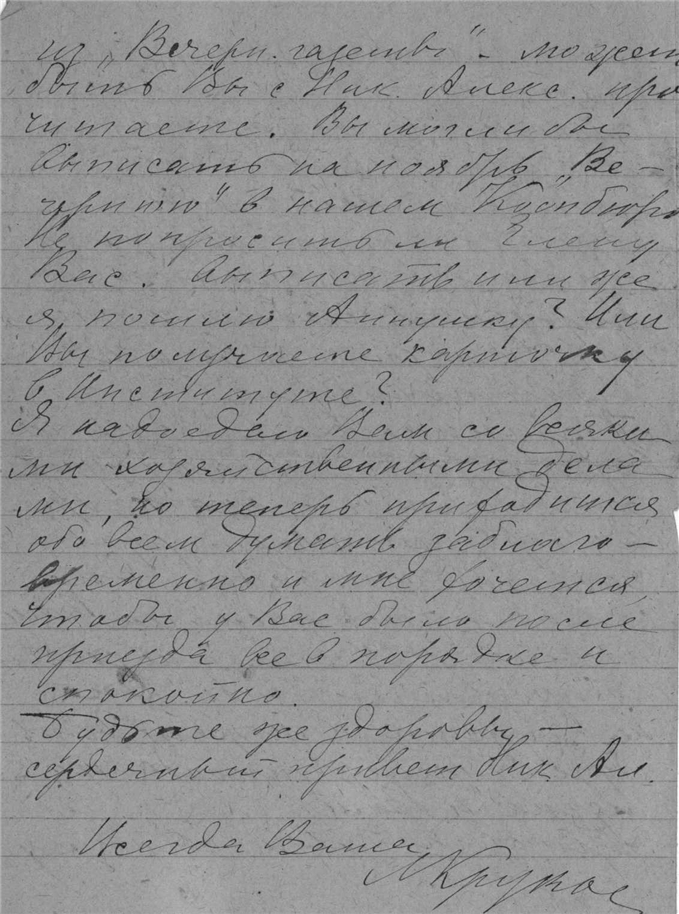 из „Вечерн. газеты“ - может
быть Вы с Ник. Алекс. про
читаете. Вы могли бы
выписать на ноябрь „Ве-
чернюю“ в нашем Коопбюро
Не попросить ли Елену
Вас. выписать или же
я пошлю Аннушку? Или
Вы получаете карточку
в Институте?
Я надоедаю Вам со всяки
ми хозяйственными дела
ми, но теперь приходится
обо всем думать заблаго-
временно и мне хочется,
чтобы у Вас было после
приезда все в порядке и
спокойно.
Будьте же здоровы -
сердечный привет Ник. Ал.
Всегда Ваша